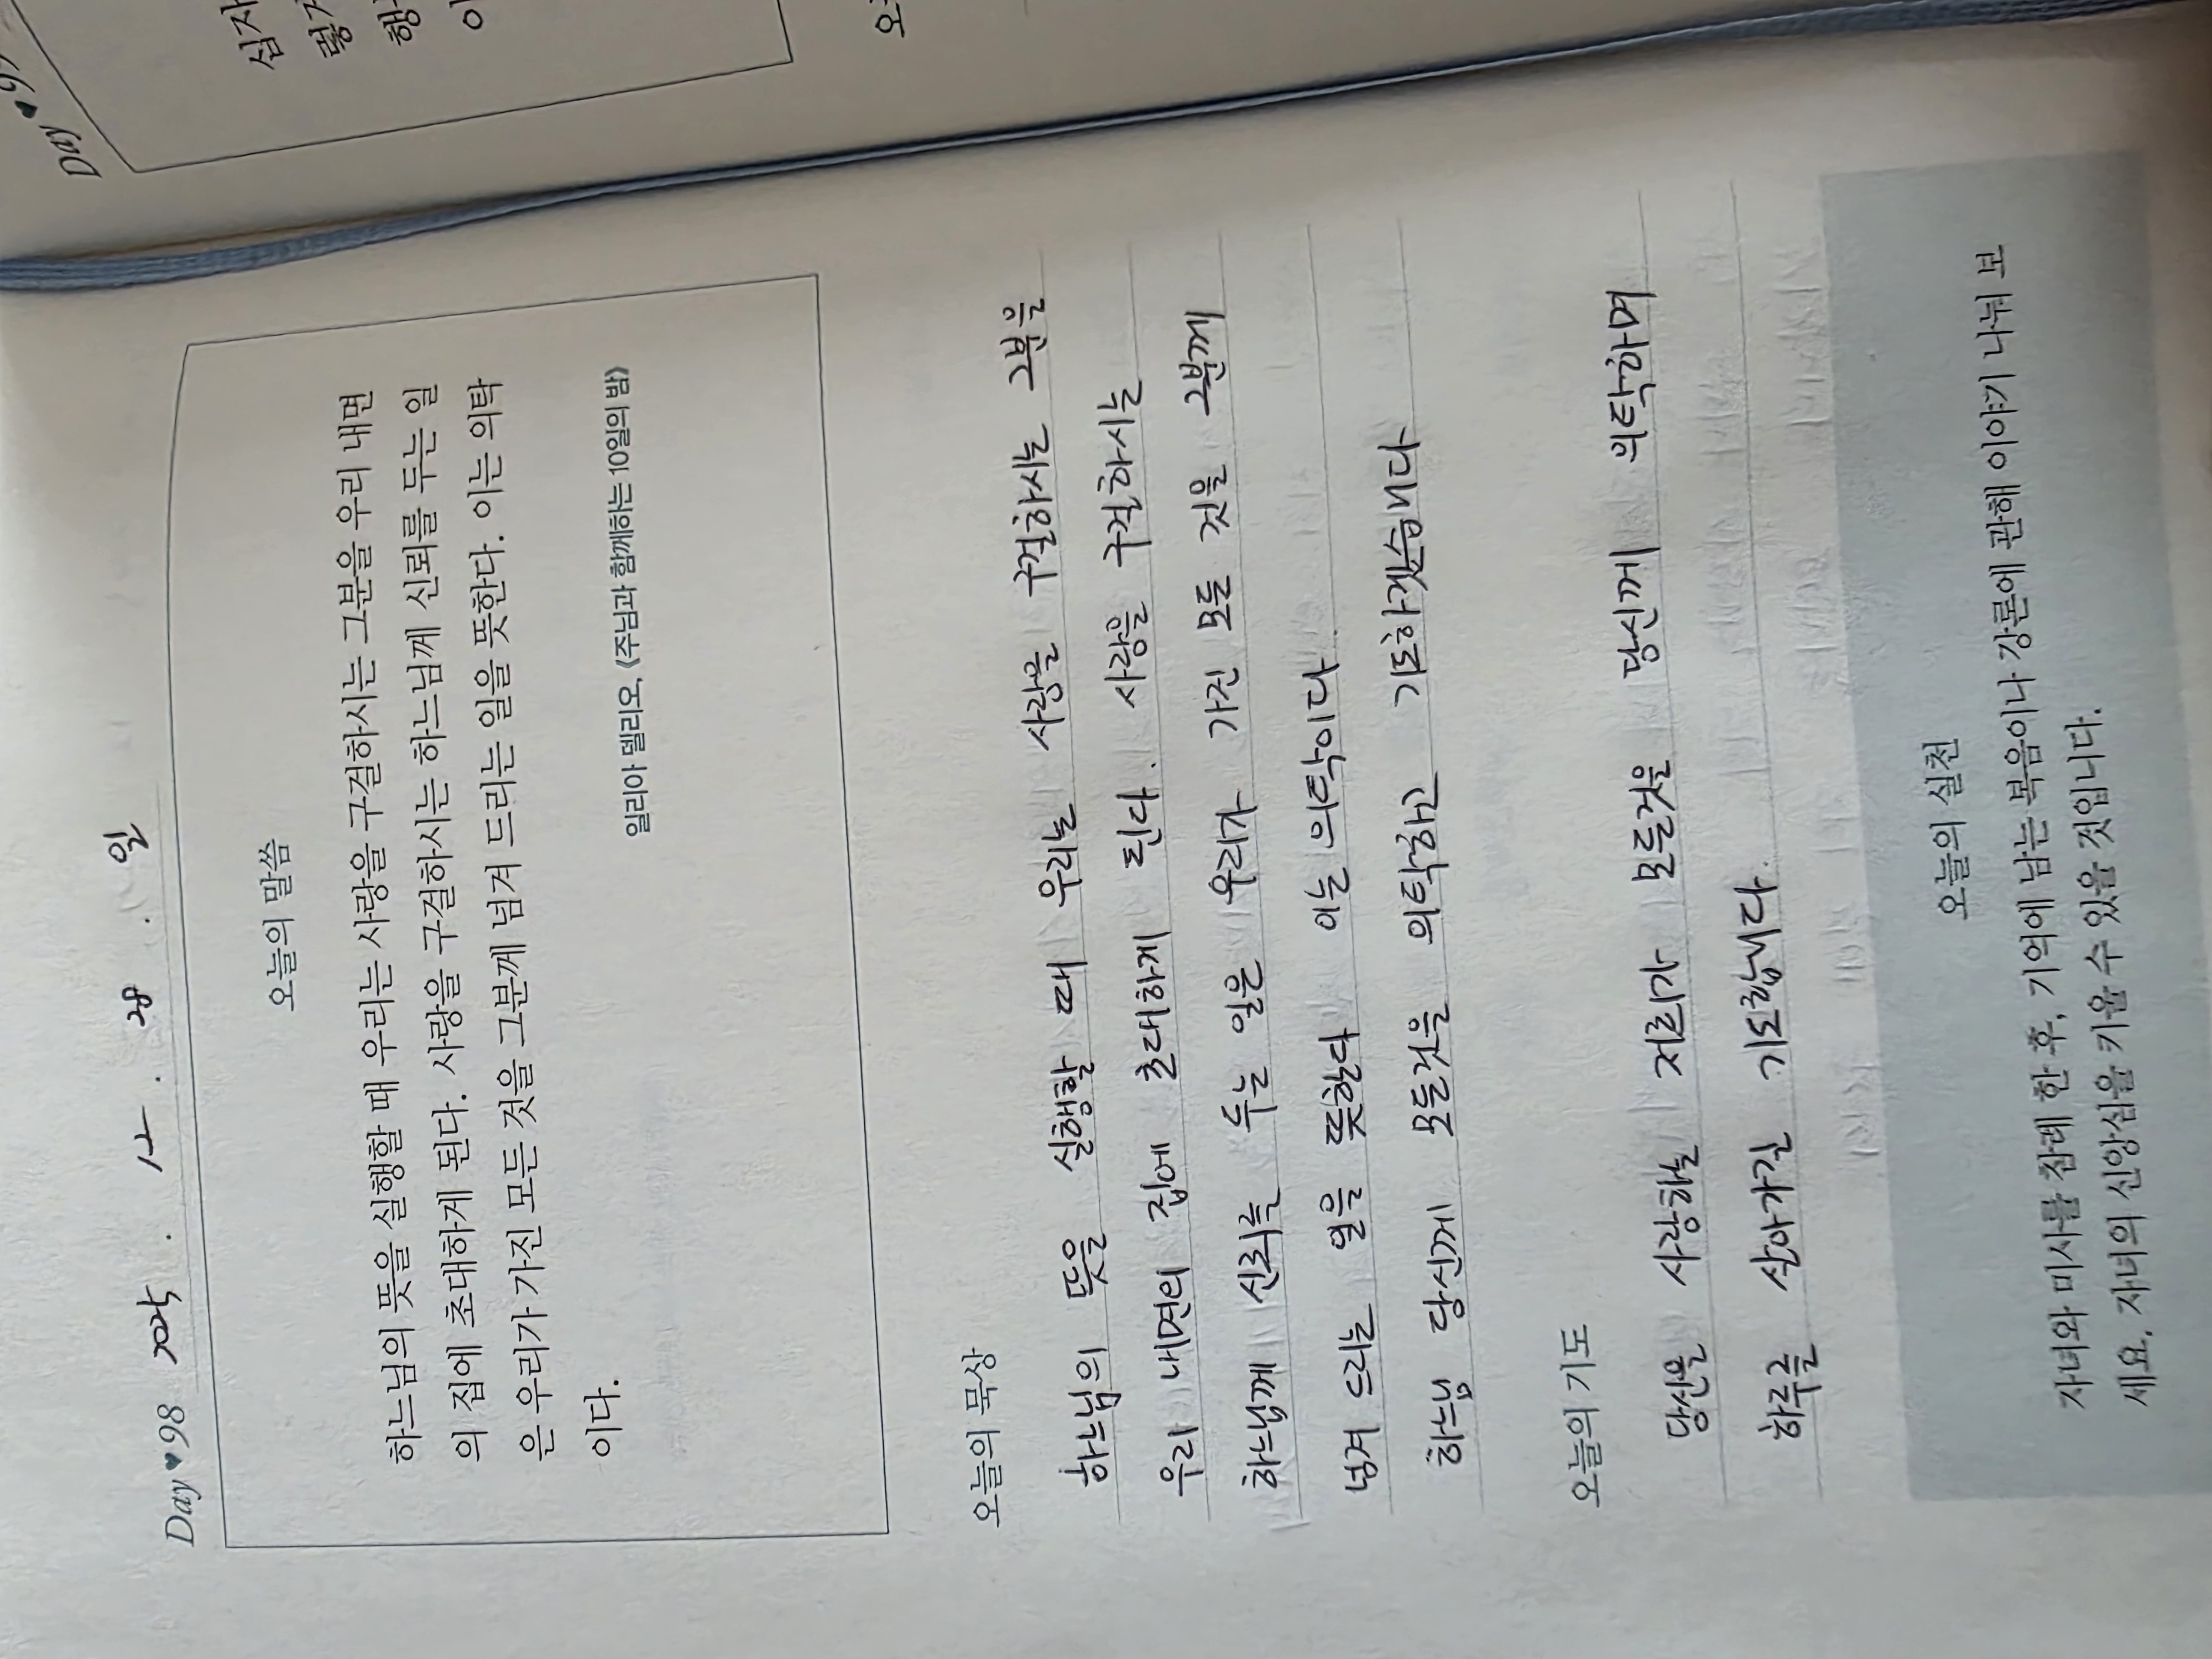 Day♥98 2025. 12. 28. 일
오늘의 말씀
하느님의 뜻을 실행할 때 우리는 사랑을 구걸하시는 그분을 우리 내면
의 집에 초대하게 된다. 사랑을 구걸하시는 하느님께 신뢰를 두는 일
은 우리가 가진 모든 것을 그분께 넘겨 드리는 일을 뜻한다. 이는 의탁
이다.
일리아 델리오, 《주님과 함께하는 10일의 밤》
오늘의 묵상
하느님의 뜻을 실행할 때 우리는 사랑을 구걸하시는 그분을
우리 내면의 집에 초대하게 된다. 사랑을 구걸하시는
하느님께 신뢰를 두는 일은 우리가 가진 모든 것을 그분께
넘겨 드리는 일을 뜻한다 이는 의탁이다.
하느님 당신께 모든것을 의탁하고 기도하겠습니다
오늘의 기도
당신을 사랑하는 저희가 모든것을 당신께 의탁하며
하루를 살아가길 기도합니다.
오늘의 실천
자녀와 미사를 참례 한 후, 기억에 남는 복음이나 강론에 관해 이야기 나눠 보
세요. 자녀의 신앙심을 키울 수 있을 것입니다.
Day♥97
십자